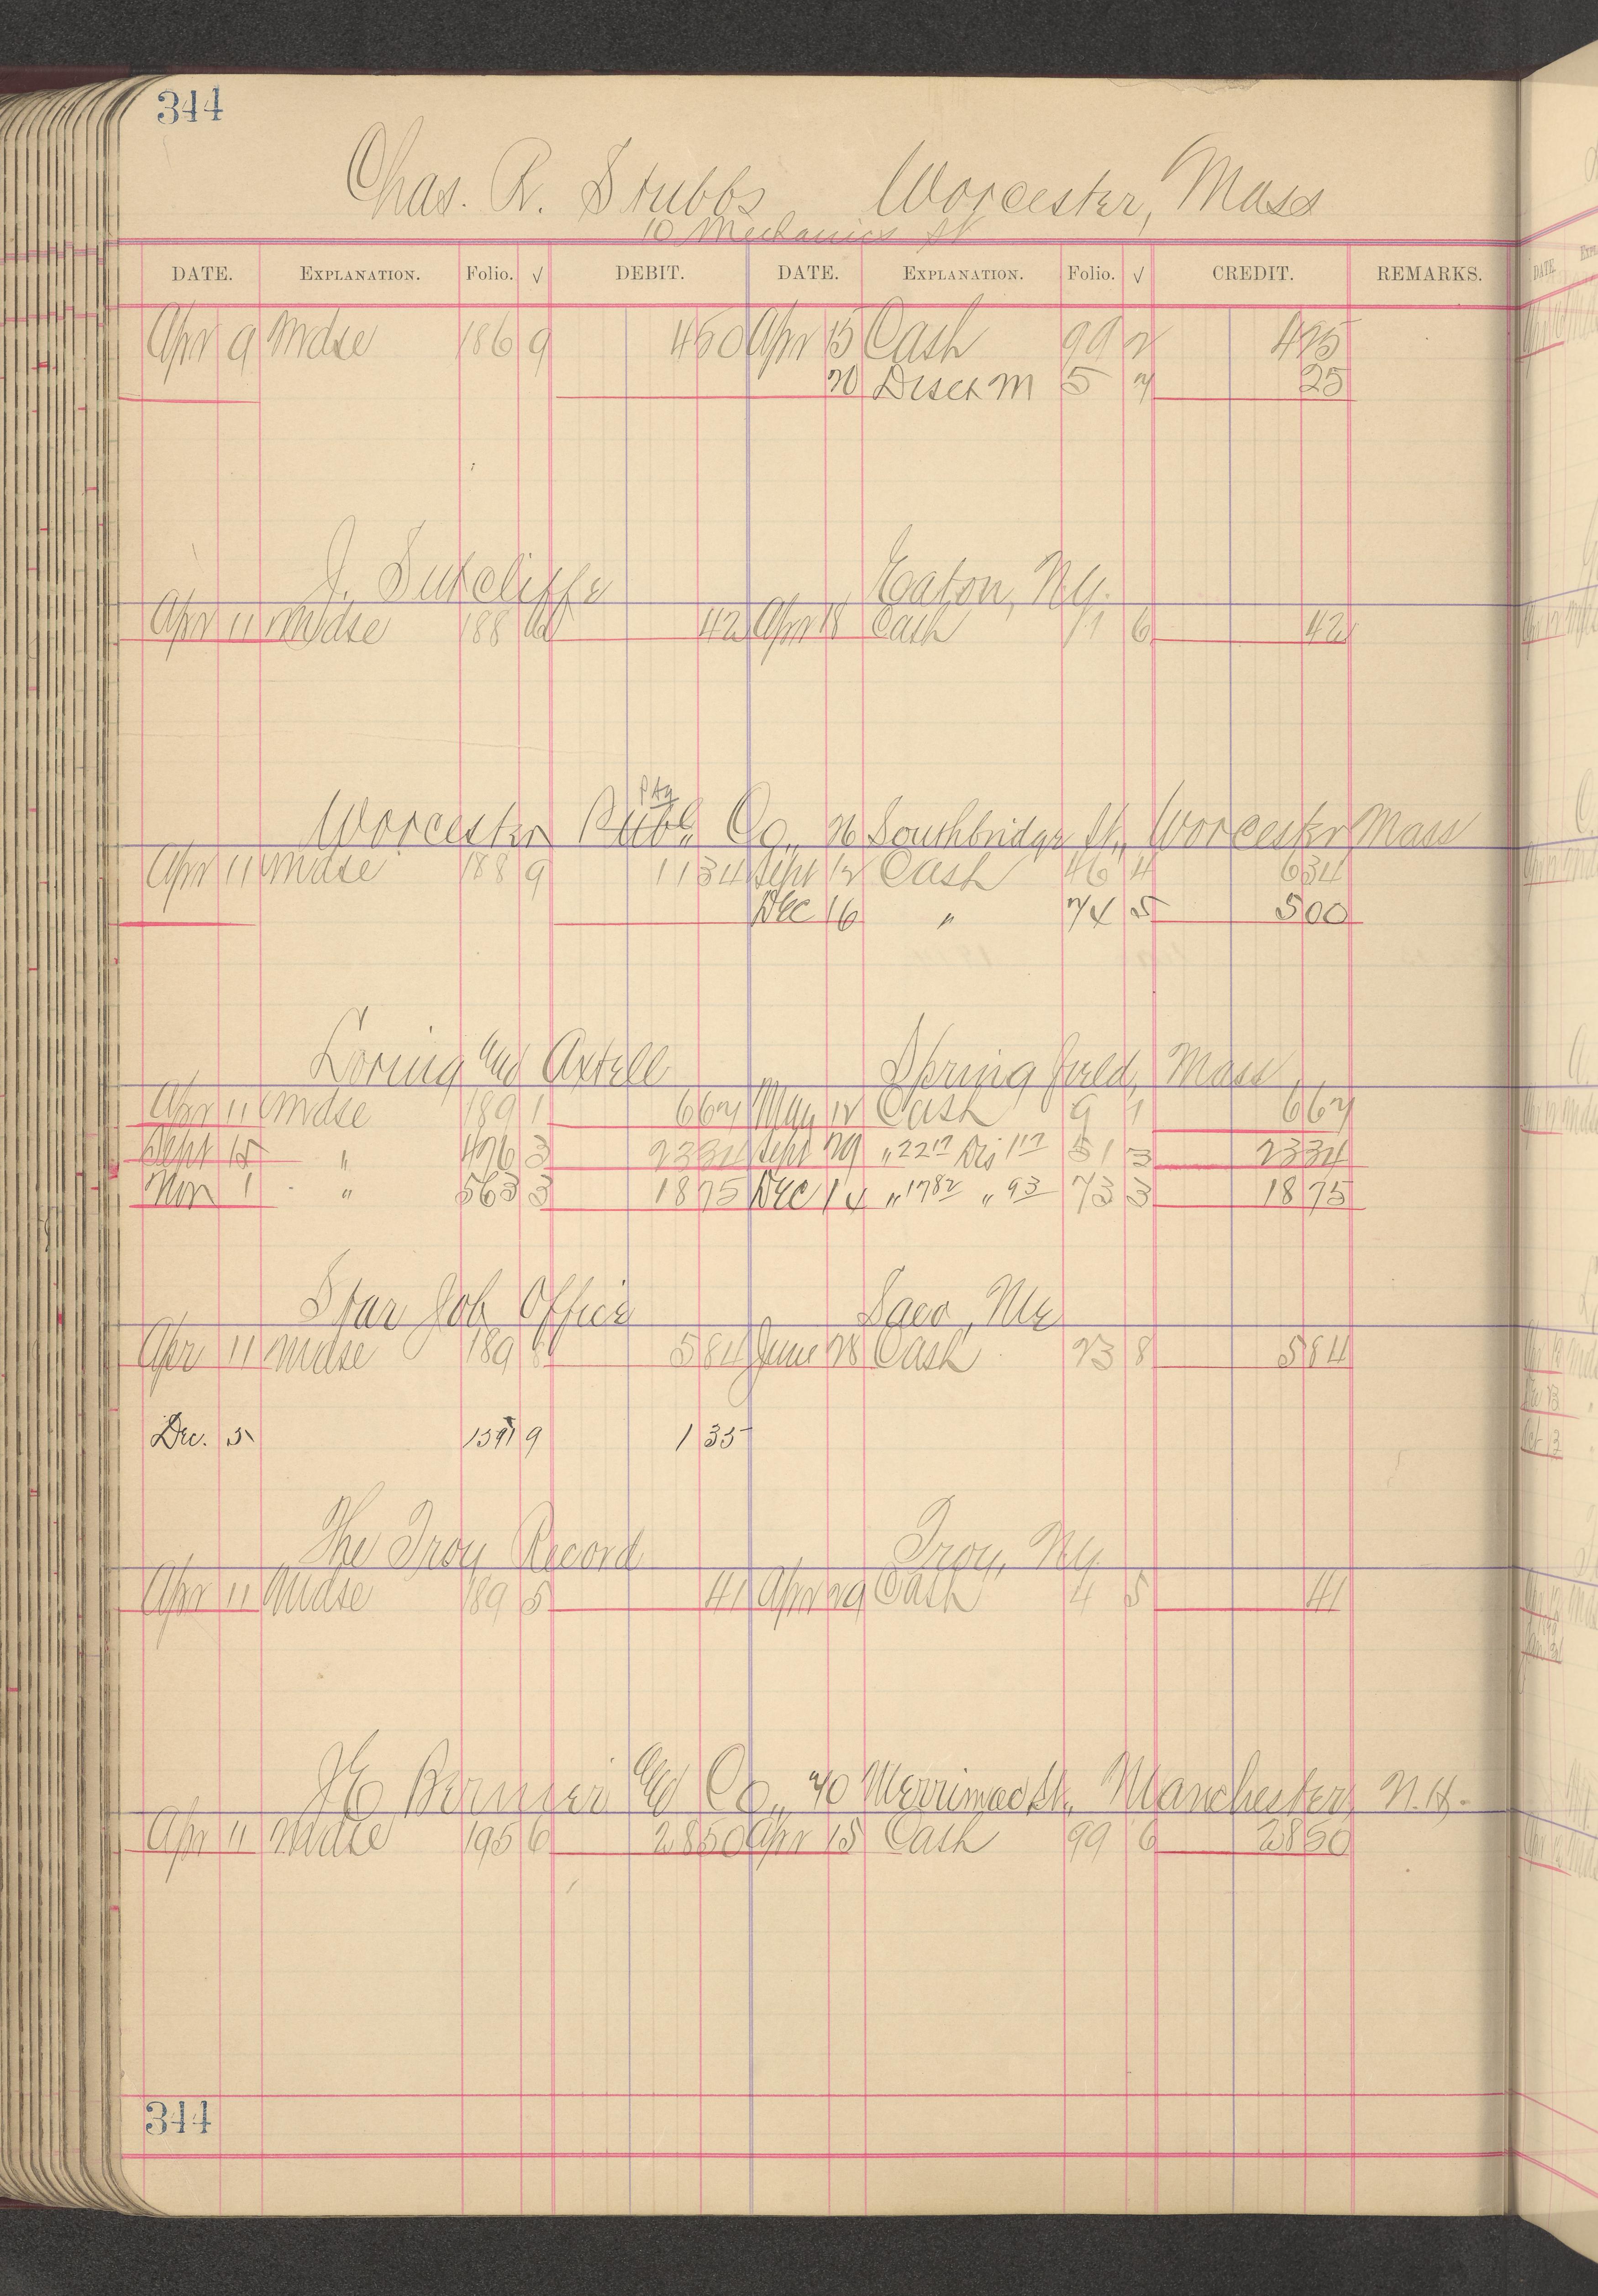 344
Chas. R. Stubbs Worcester, Mass
10 Mechanics St
DATE. EXPLANATION. Folio. √ DEBIT. DATE. EXPLANATION. Folio. √ CREDIT. REMARKS.
Apr 9 Mdse 186 9 4 50 Apr 15 Cash 99 2 4 25
20 Disct M 5 7 25
J. Sutcliffe Eaton, N.Y.
Apr 11 Mdse 188 42 Apr 18 Cash 1 6 42
Worcester Ptg Co. 26 Southbridge St., Worcester Mass
Apr 11 Mdse 188 9 11 34 Sept 12 Cash 46 4 6 34
Dec 16 " 74 5 5 00
Loring and Axtell Springfield, Mass
Apr 11 Mdse 189 1 6 67 May 12 Cash 9 1 6 67
Sept 15 " 476 3 23 34 Sept 29 " 22 17 Dis 1 17 51 3 23 34
Nov 1 " 563 3 18 75 Dec 14 " 17 82 " 93 73 3 18 75
Star Job Office Saco, Me
Apr 11 Mdse 189 8 5 84 June 28 Cash 23 8 5 84
Dec. 5 9 1 35
The Troy Record Troy, N.Y.
Apr 11 Mdse 189 5 41 Apr 29 Cash 4 5 41
J E Bernier and Co., 70 Merrimac St., Manchester, N.H.
Apr 11 Mdse 195 6 28 50 Apr 15 Cash 99 6 28 50
344